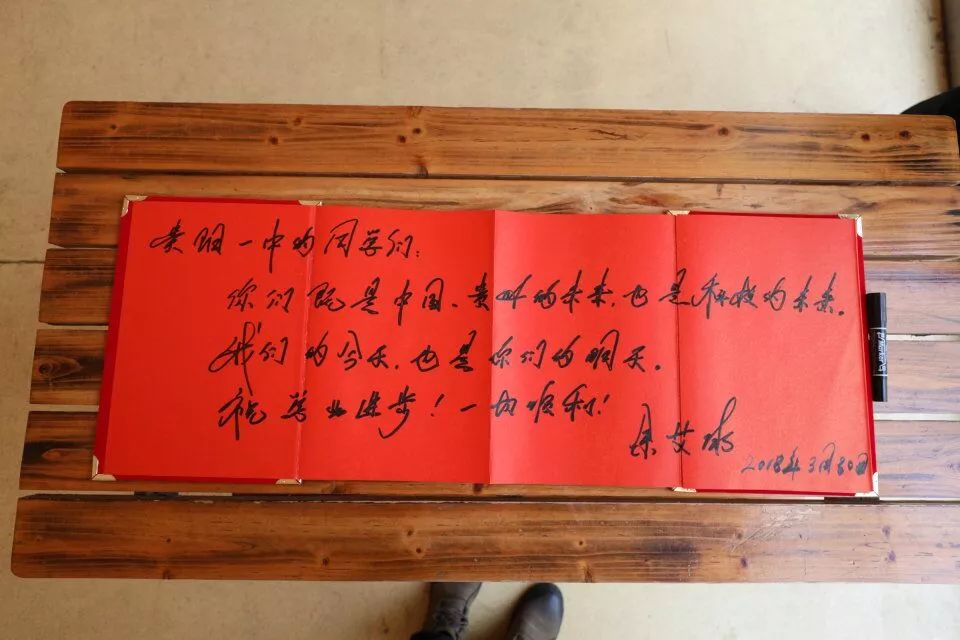 贵阳一中的同学们:
你们既是中国、贵州的未来,也是科技的未来。
我们的今天,也是你们的明天。
祝学业进步!一切顺利!
2018年3月30日